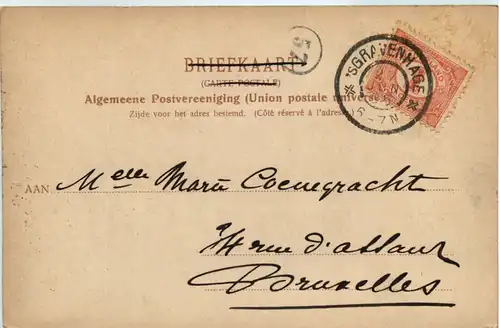 57
BRIEFKAART
(CARTE POSTALE)
'SGRAVENHAGE
6-7N
Algemeene Postvereeniging (Union postale universelle)
Zijde voor het adres bestemd. (Côté réservé à l'adresse)
AAN Melle Marie Coenegracht
rue d'assaut
Bruxelles